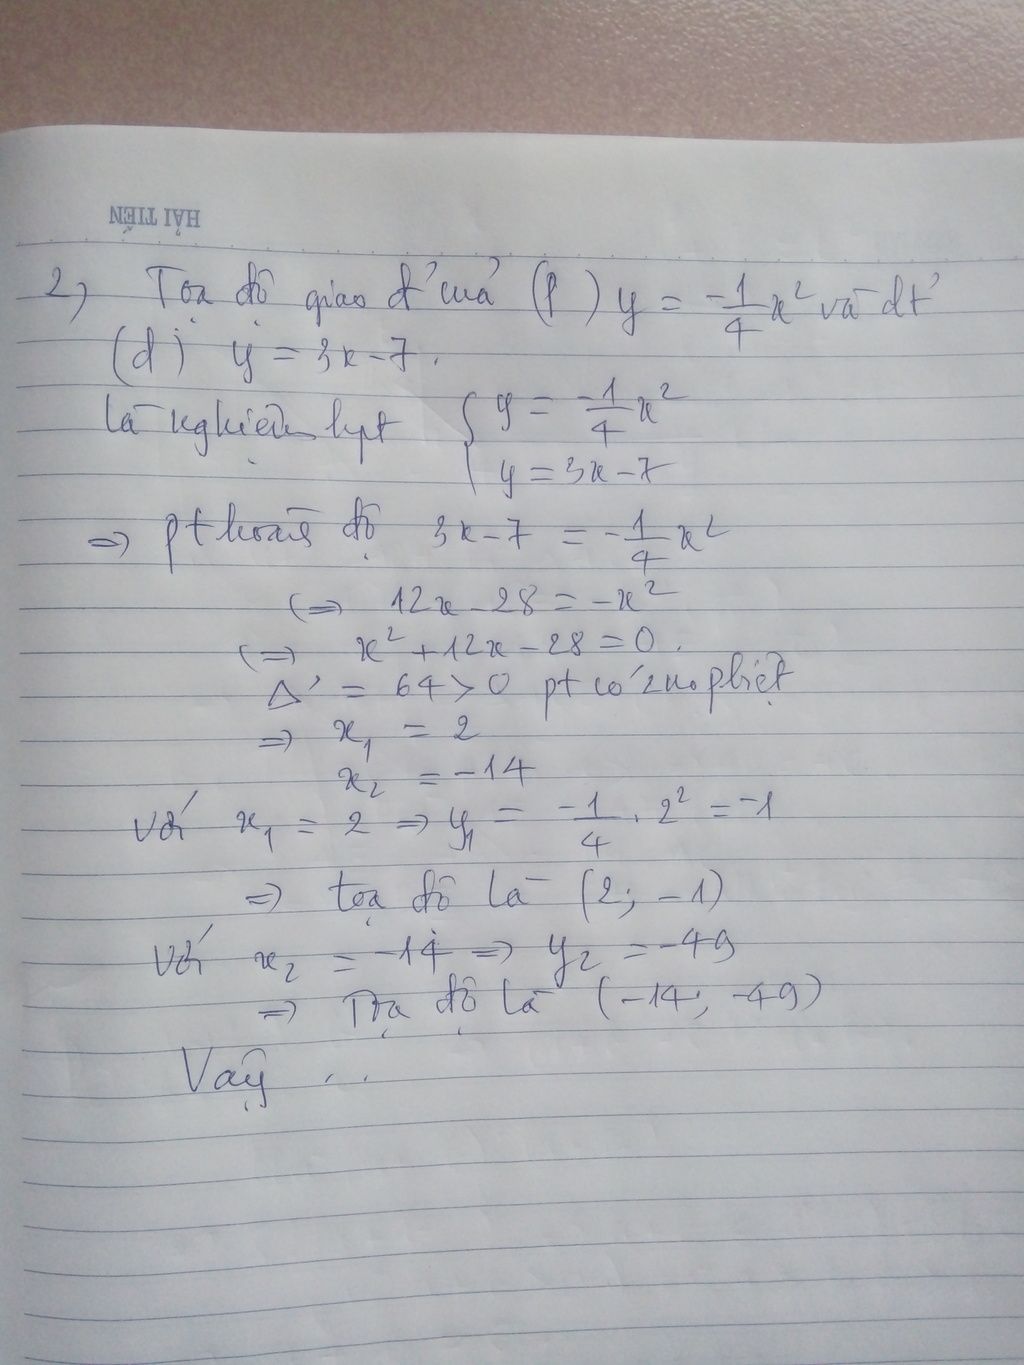 HẢI TIẾN
2) Tọa độ giao đ' của (P) y = -1/4 x² và đt'
(d) y = 3x - 7.
là nghiệm hpt { y = -1/4 x²
y = 3x - 7
=> pt hoành độ 3x - 7 = -1/4 x²
(=> 12x - 28 = -x²
(=> x² + 12x - 28 = 0.
Δ' = 64 > 0 pt có 2 no pbiệt
=> x₁ = 2
x₂ = -14
Với x₁ = 2 => y₁ = -1/4 . 2² = -1
=> tọa độ là (2; -1)
Với x₂ = -14 => y₂ = -49
=> Tọa độ là (-14; -49)
Vậy ...